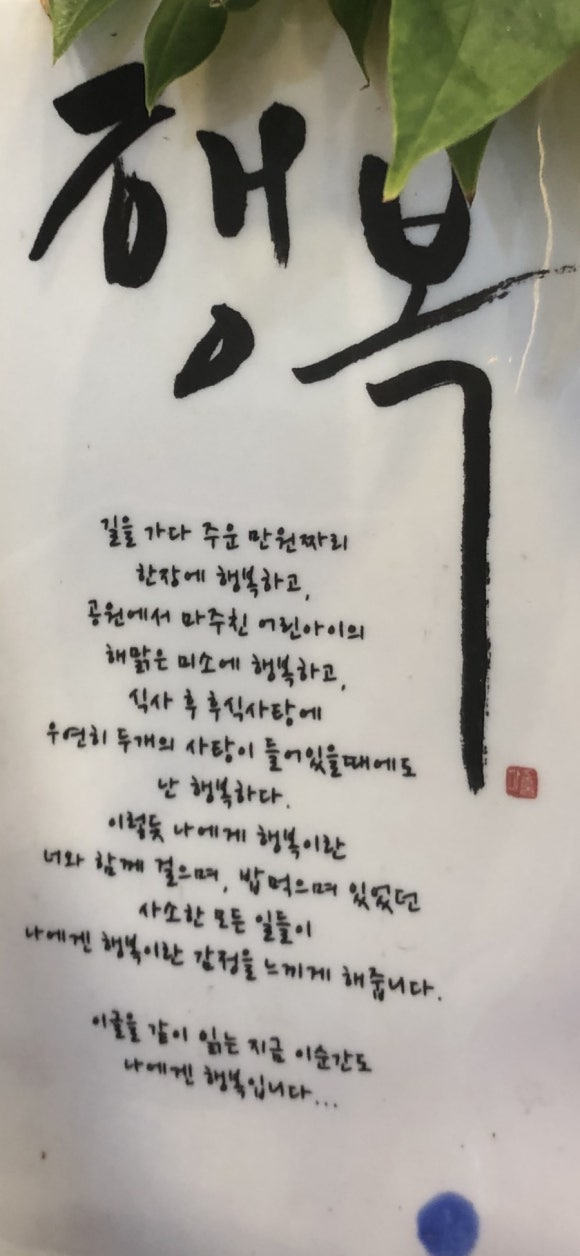 행복
길을 가다 주운 만원짜리
한장에 행복하고,
공원에서 마주친 어린아이의
해맑은 미소에 행복하고,
식사 후 후식사탕에
우연히 두개의 사탕이 들어있을때에도
난 행복하다.
이렇듯 나에게 행복이란
너와 함께 걸으며, 밥먹으며 있었던
사소한 모든 일들이
나에겐 행복이란 감정을 느끼게 해줍니다.
이글을 같이 읽는 지금 이순간도
나에겐 행복입니다...